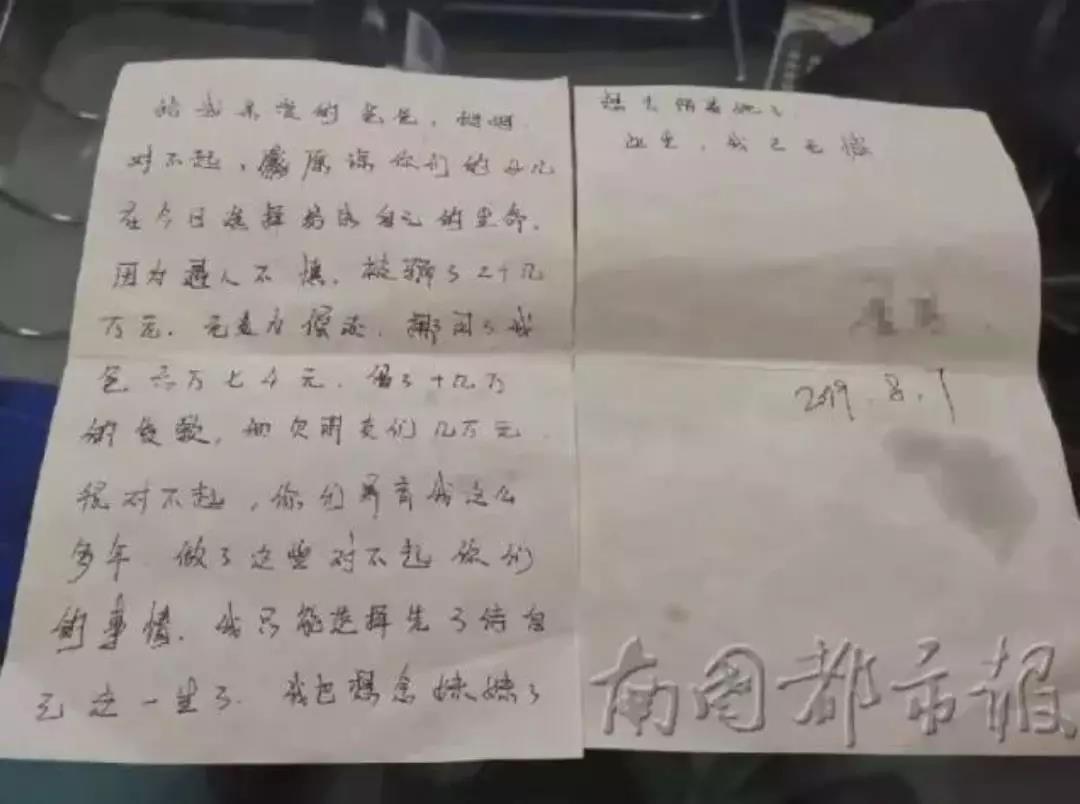 给我亲爱的爸爸、妈妈.
对不起,原谅你们的女儿
在今日选择结束自己的生命.
因为遇人不慎,被骗了2十几
万元.无力偿还.挪用了我
爸六万七千元.借了十几万
的贷款,切欠朋友们几万元.
很对不起,你们养育我这么
多年.做了这些对不起你们
的事情.我只能选择先了结自
己这一生了.我也想念妹妹了
想去陪着她了.
此生,我已无憾
2019.8.7
南国都市报